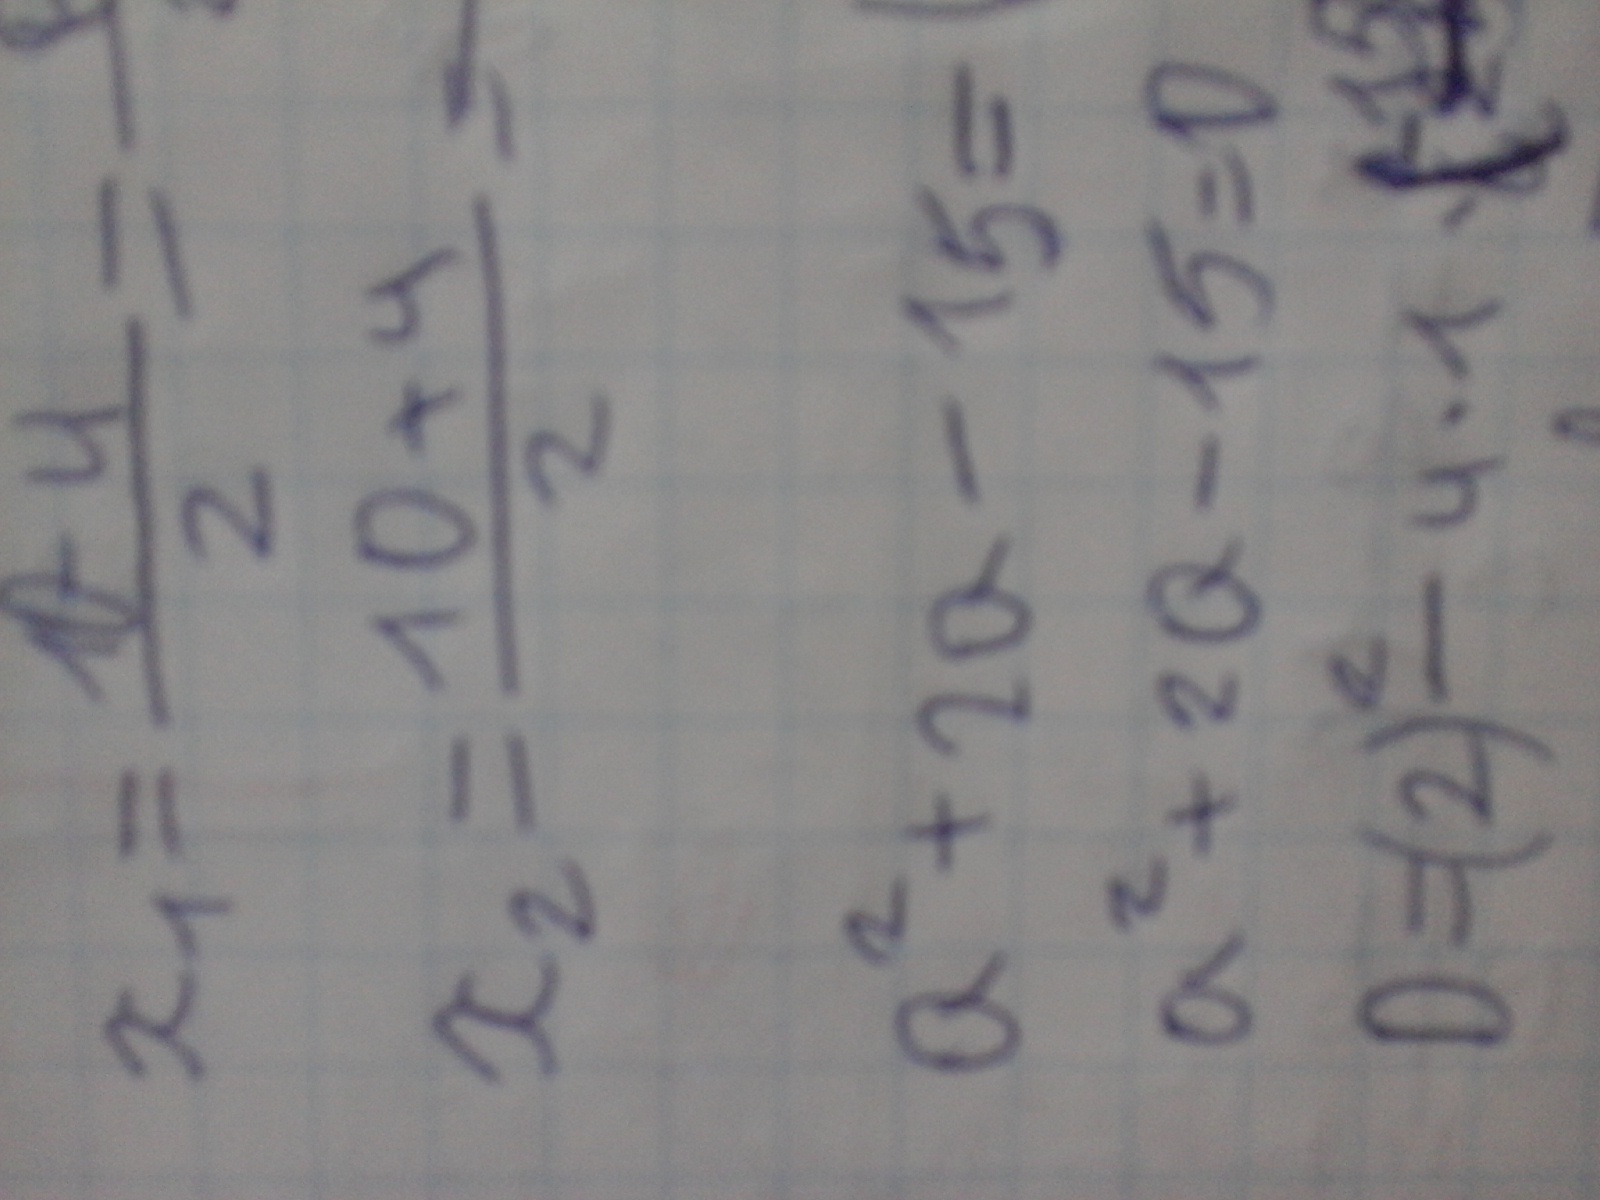 x₁ = 10-4/2 =
x₂ = 10+4/2 =
a² + 2a - 15 =
a² + 2a - 15 = 0
D = (2)² - 4 · 1 · (-15)